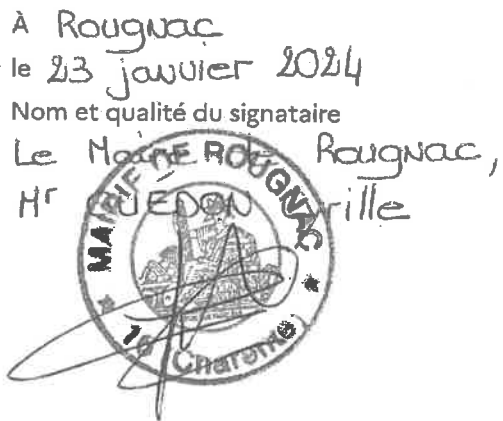 À Rougnac
le 23 janvier 2024
Nom et qualité du signataire
Le Maire de Rougnac,
Mr GUEDON
MAIRIE DE ROUGNAC
16 (Charente)